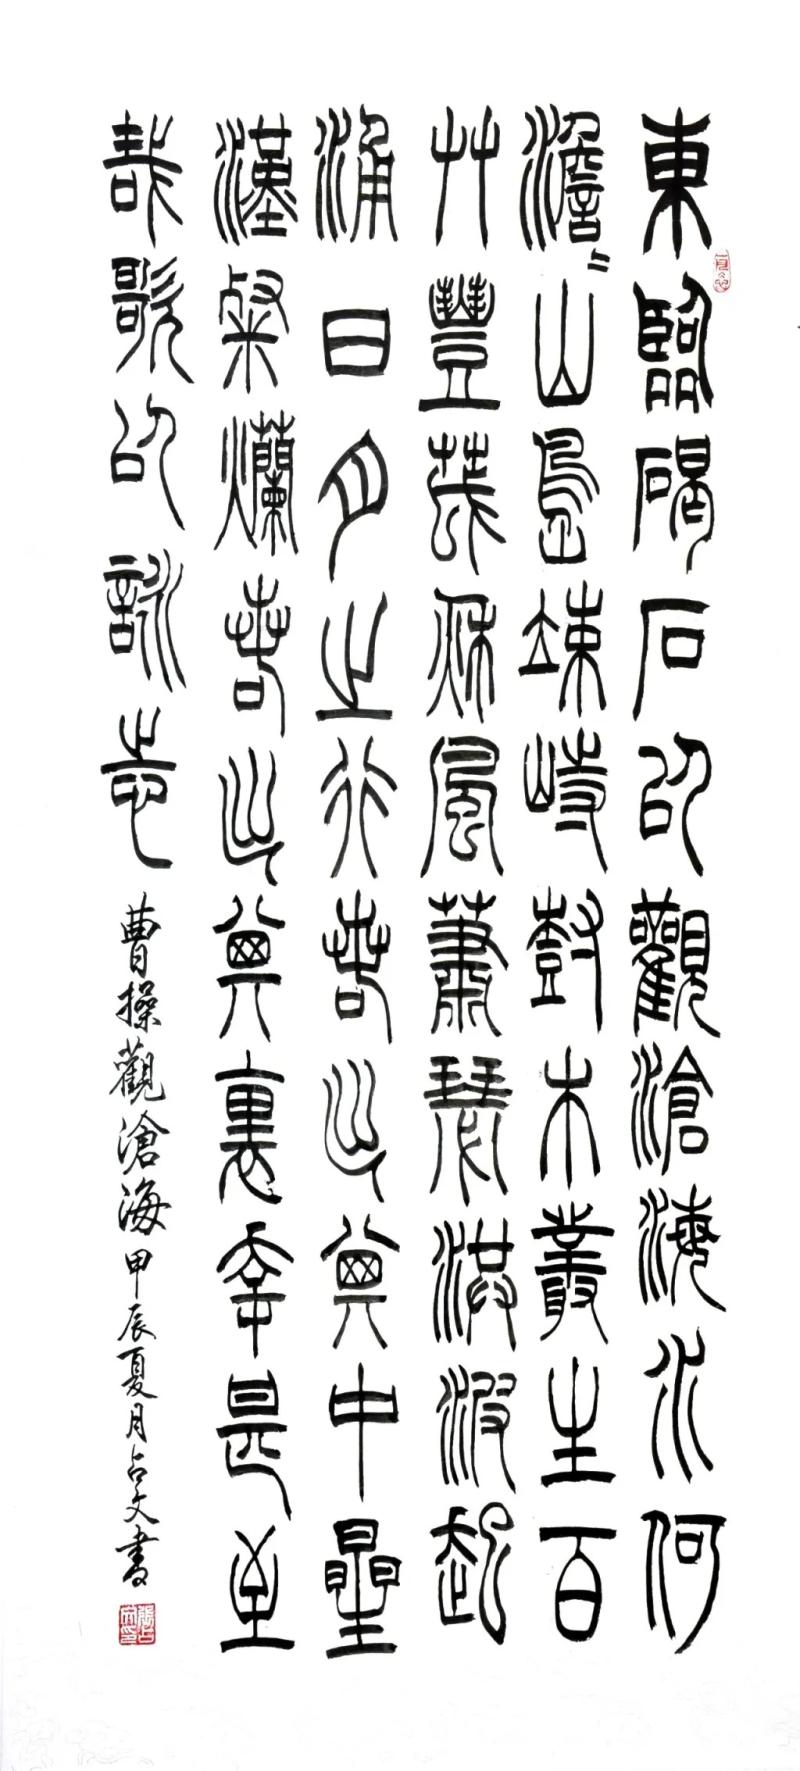 東臨碣石以觀滄海水何
澹〻山島竦峙樹木叢生百
艸豐茂秋風蕭瑟洪波起
涌日月之行若出其中星
漢粲爛若出其裏幸甚至
哉歌以詠志
曹操觀滄海甲辰夏月占文書
張占文印